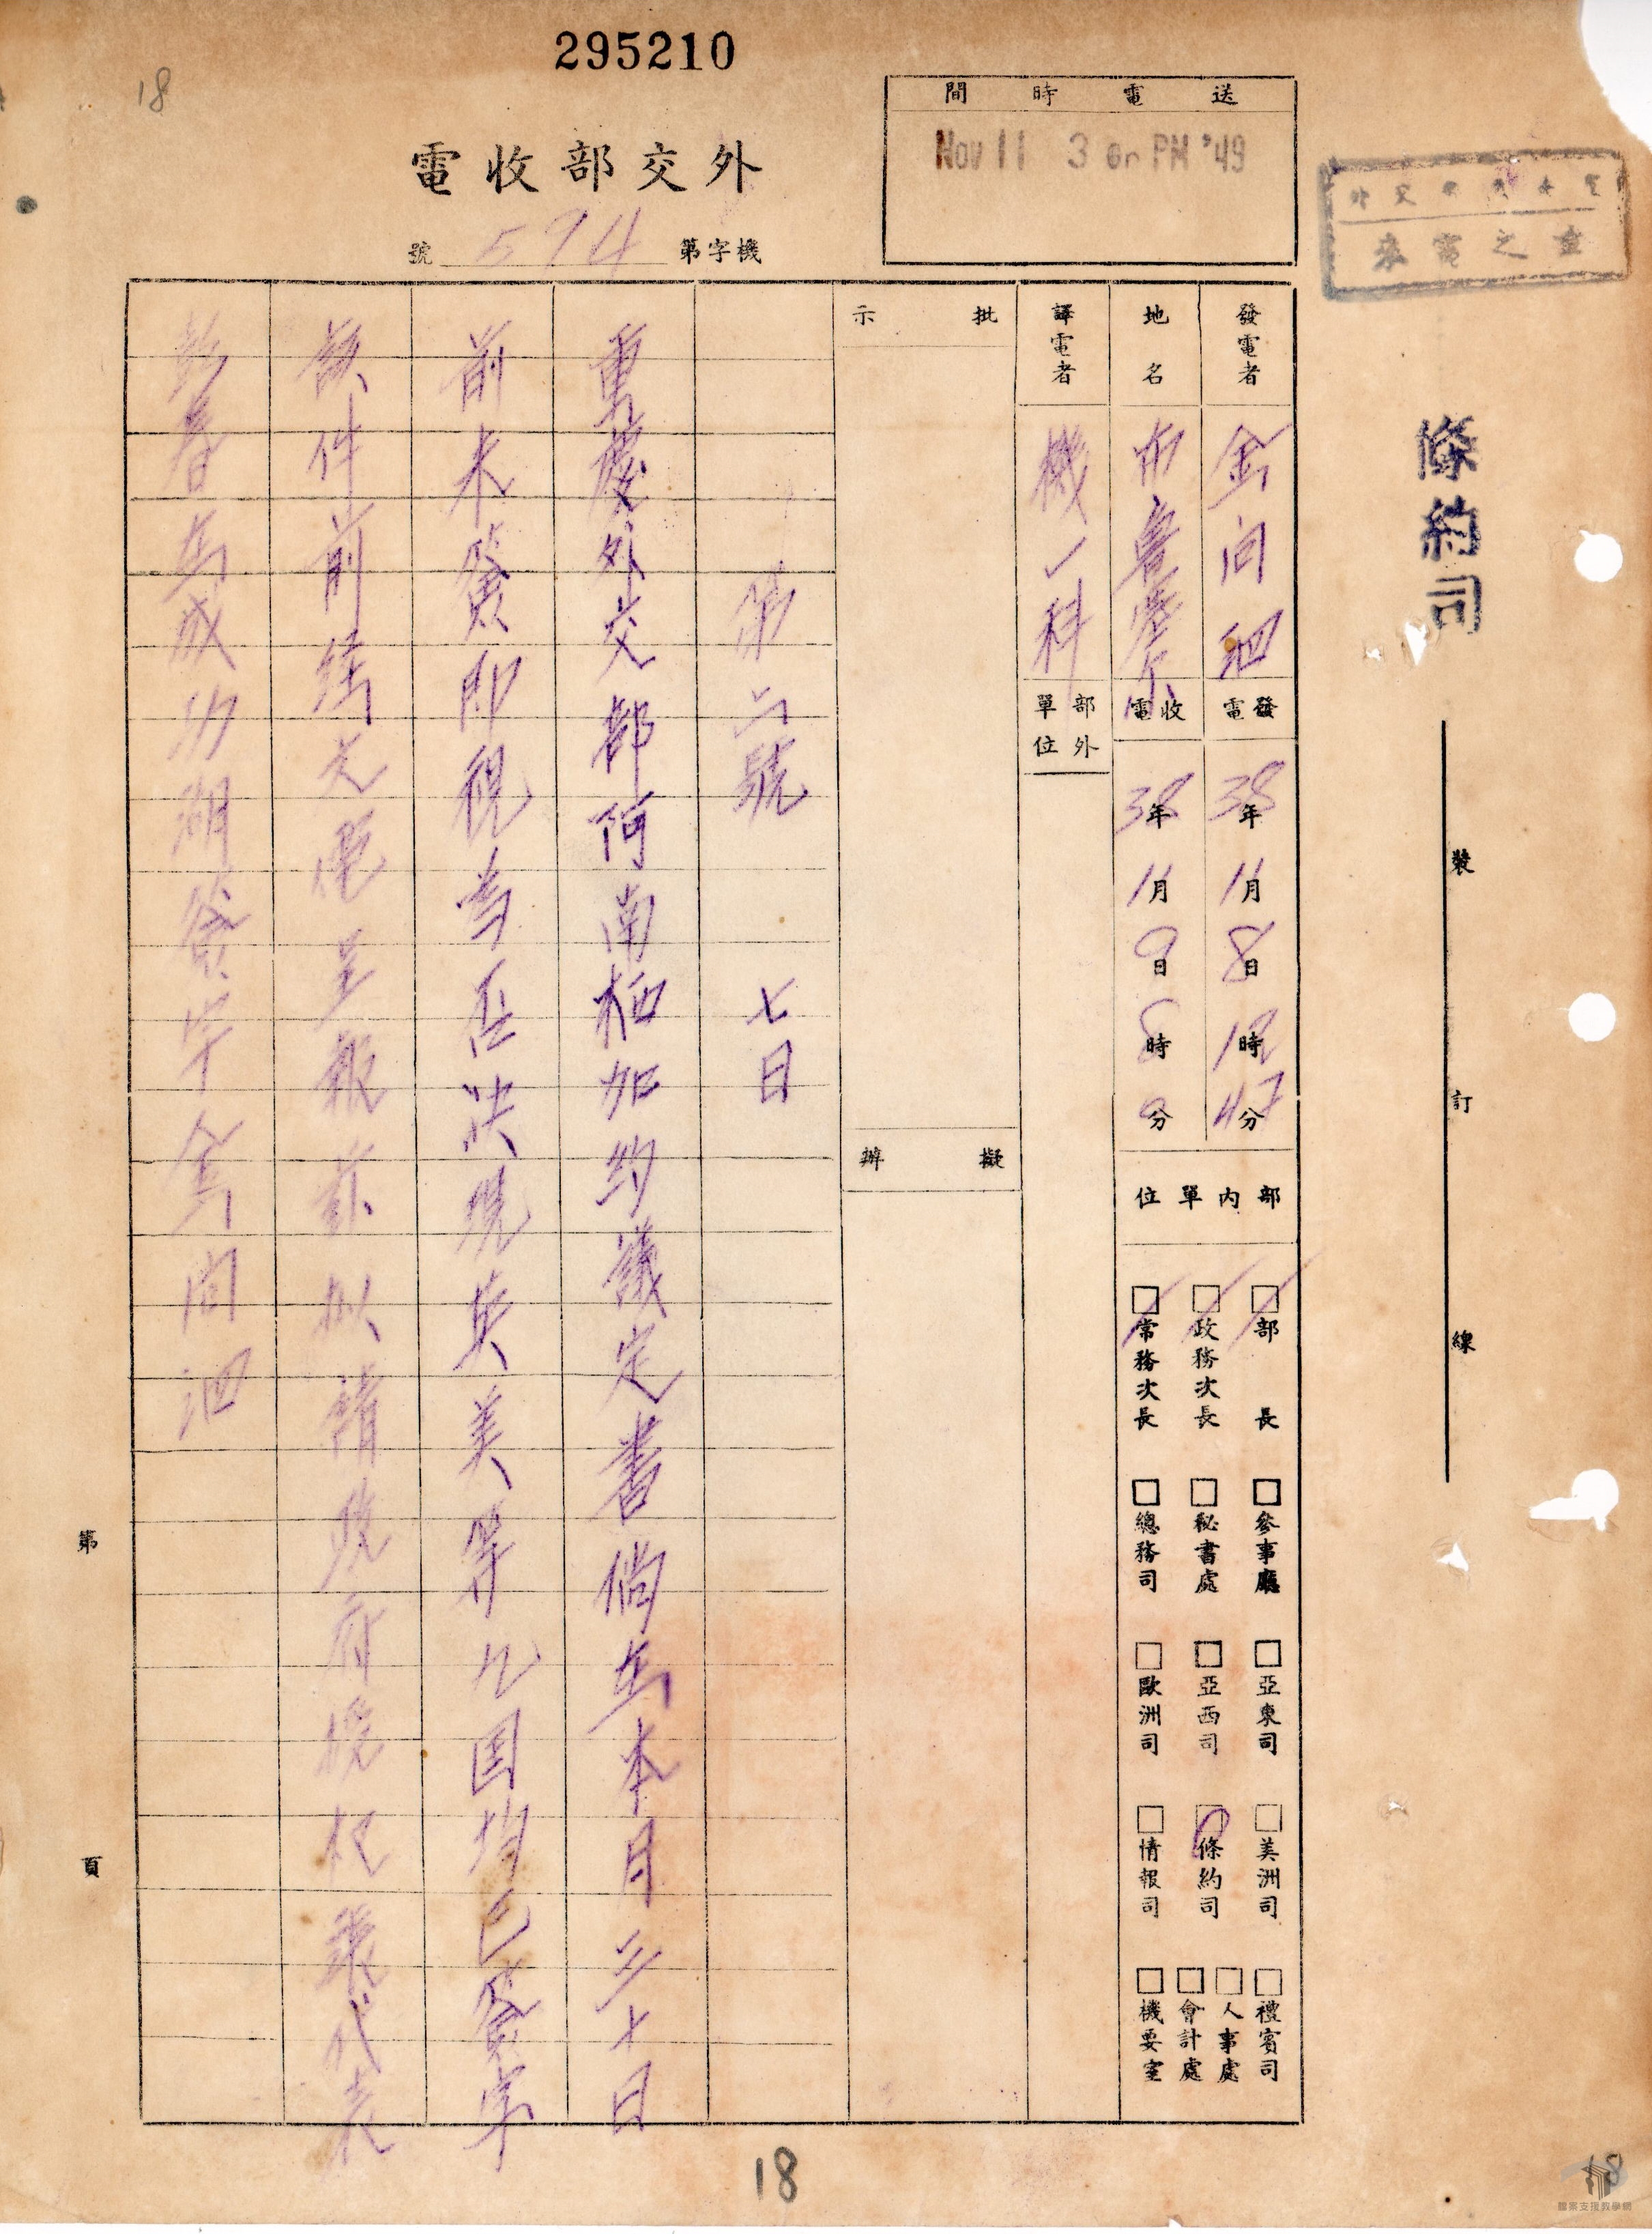 295210
18
外交部收電
機字第574號
送電時間
Nov 11 3 PM '49
來電之
條約司
裝
訂
線
發電者
金問泗
地名
布魯塞尔
譯電者
機一科
發電
38年11月8日18時47分
收電
38年11月9日8時9分
部外單位
部內單位
部長
政務次長
常務次長
參事廳
秘書處
總務司
亞東司
亞西司
歐洲司
美洲司
條約司
情報司
禮賓司
人事處
會計處
機要室
批示
擬辦
第六號 七日
重慶外交部阿南栖加約議定書倘至本月三十日
前未簽即視為否決現英美等九国均已簽字
該件前經元電呈報茲拟請政府授权張代表
彭春在成功湖簽字金問泗
第
頁
18
18
檔案支援教學網